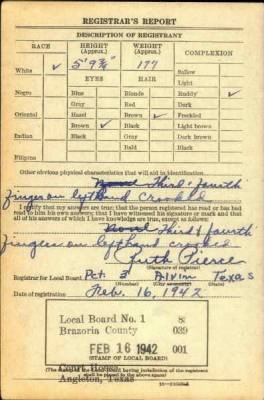 REGISTRAR'S REPORT
DESCRIPTION OF REGISTRANT
RACE HEIGHT (Approx.) WEIGHT (Approx.) COMPLEXION
White ✓ 5' 9¾" 177 Sallow
EYES HAIR Light
Negro Blue Blonde Ruddy ✓
Gray Red Dark
Oriental Hazel Brown ✓ Freckled
Brown ✓ Black Light brown
Indian Black Gray Dark brown
Bald Black
Filipino
Other obvious physical characteristics that will aid in identification
Third & fourth
finger on left hand crooked
I certify that my answers are true; that the person registered has read or has had
read to him his own answers; that I have witnessed his signature or mark and that
all of his answers of which I have knowledge are true, except as follows:
Third & fourth
fingers on left hand crooked
Ruth Pierce
(Signature of registrar)
Registrar for Local Board Pct. 3 Alvin Texas
(Number) (City or county) (State)
Date of registration Feb. 16, 1942
Local Board No. 1 8
Brazoria County 039
FEB 16 1942 001
(STAMP OF LOCAL BOARD)
Court House
Angleton, Texas
(The stamp of the Local Board having jurisdiction of the registrant
shall be placed in the above space)